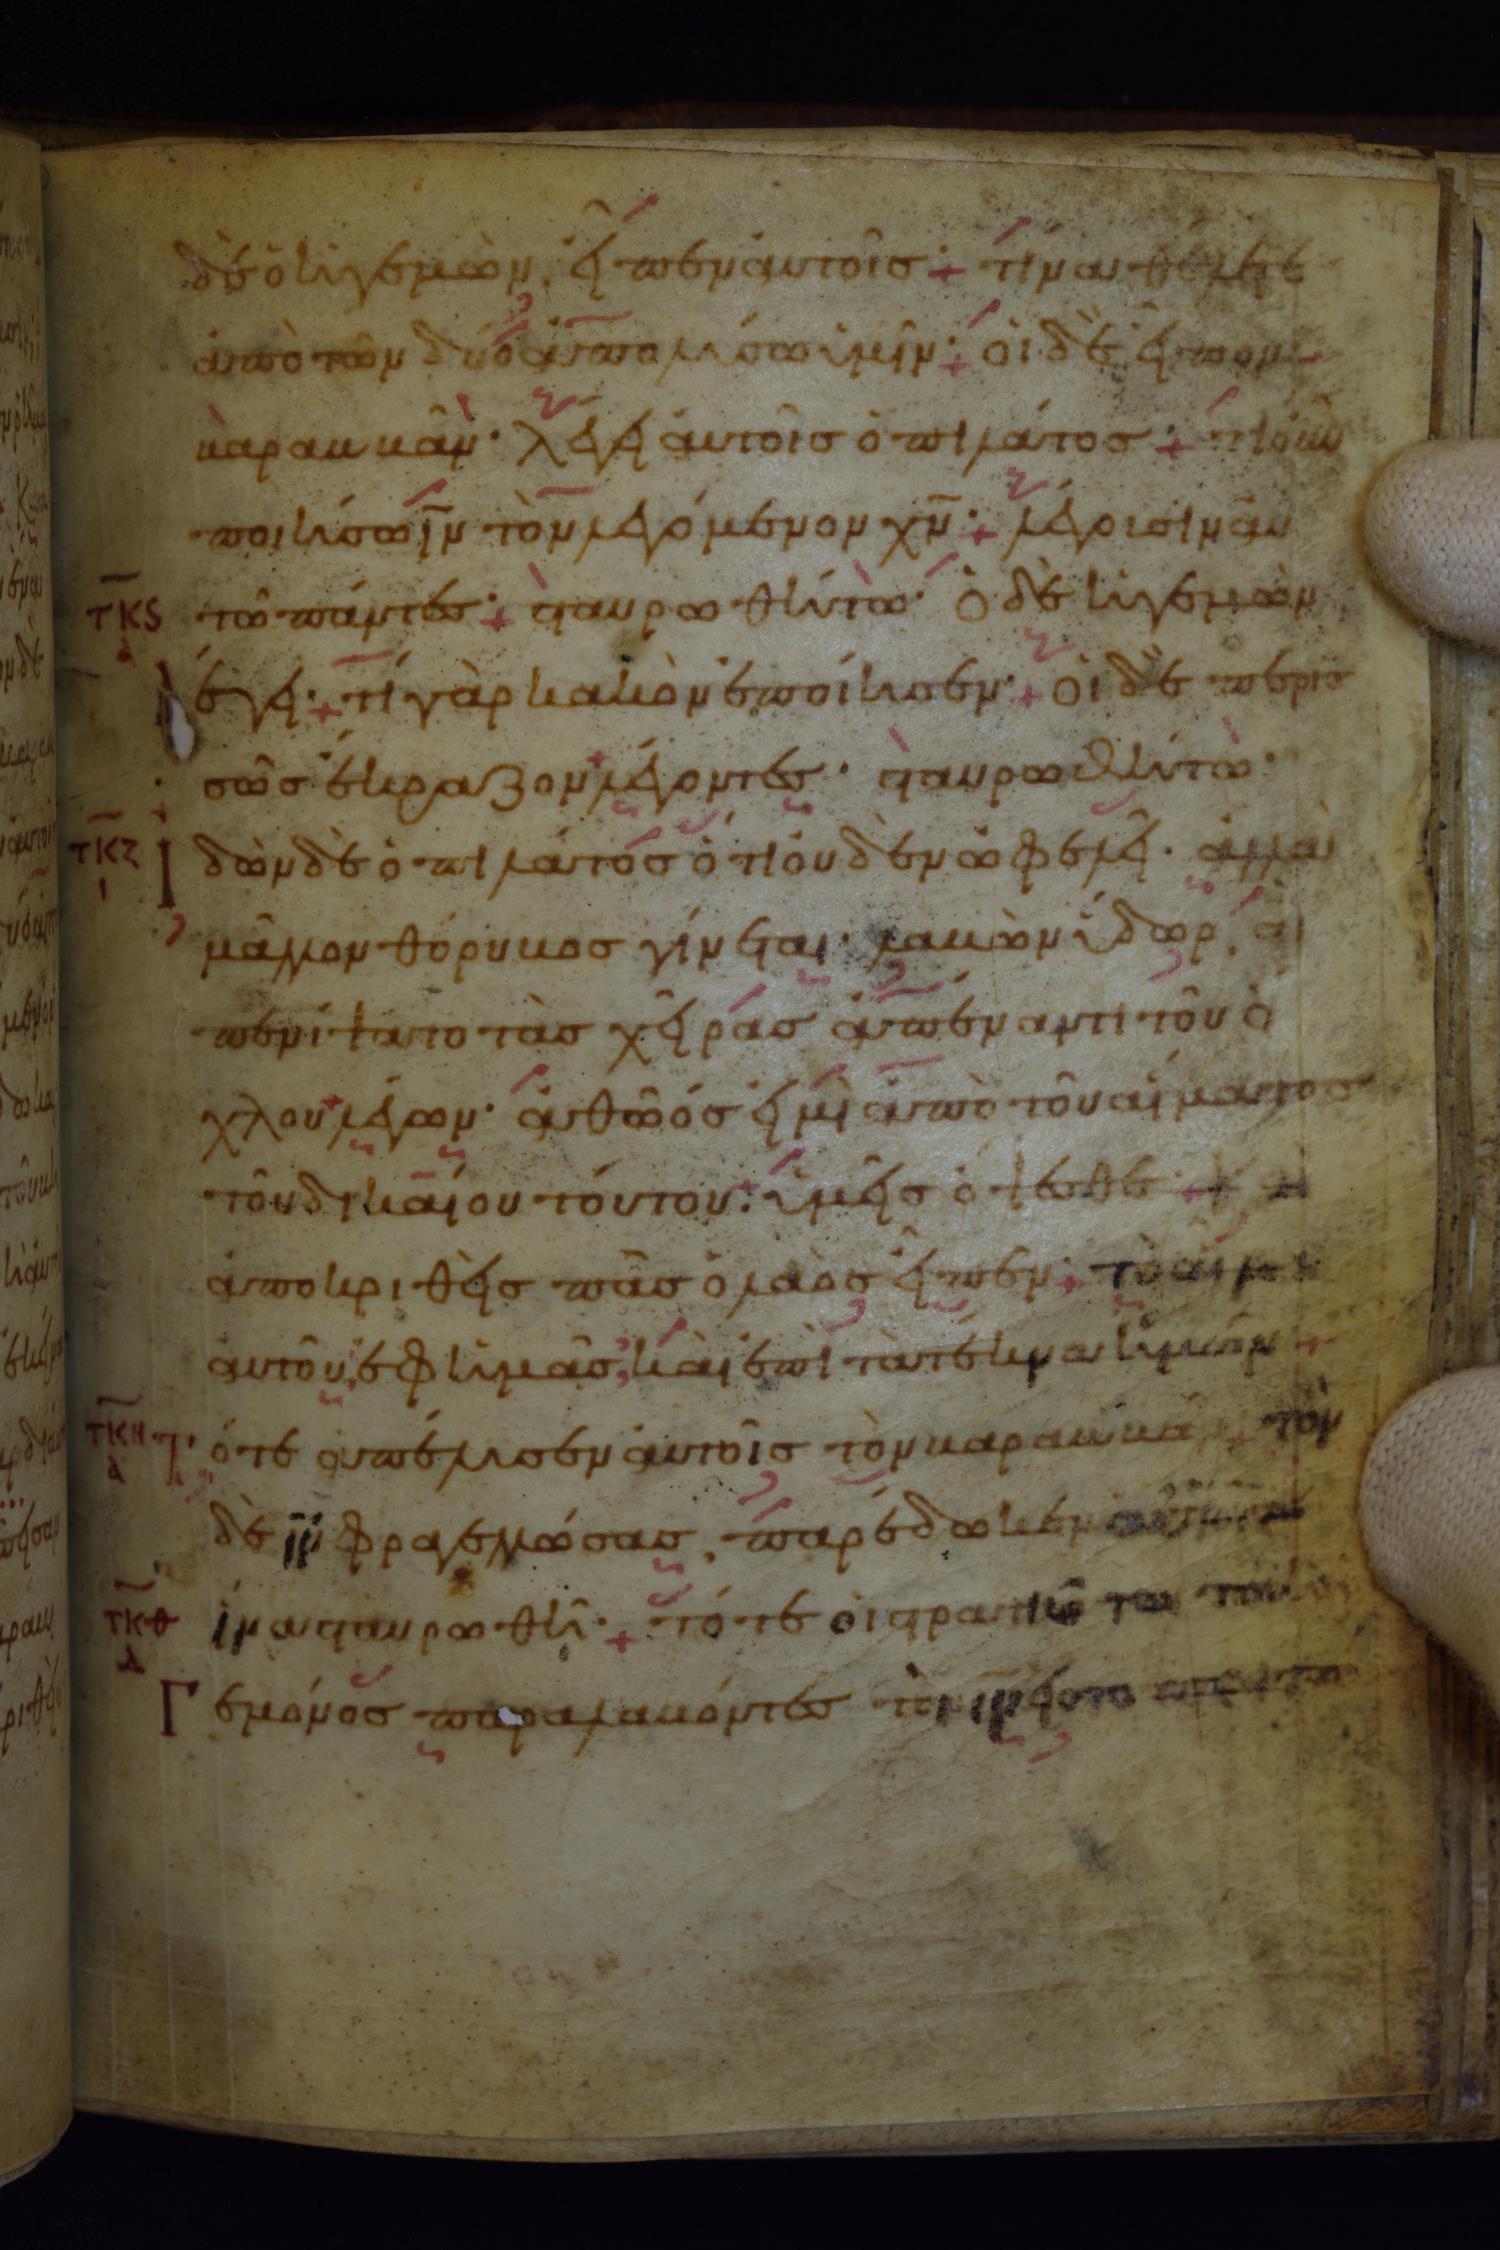 δὲ ὁ ἡγεμὼν, εἶπεν αὐτοῖς + τίνα θέλετε
ἀπὸ τῶν δύο ἀπολύσω ὑμῖν + οἱ δὲ εἶπον
βαραββᾶν· λέγει αὐτοῖς ὁ πιλάτος + τί οὖν
ποιήσω ιν τὸν λεγόμενον χν + λέγουσιν αυ
τῶ πάντες + σταυρωθήτω· ὁ δὲ ἡγεμὼν
ἔφη + τί γὰρ κακὸν ἐποίησεν + οἱ δὲ περισ
σῶς ἔκραζον λέγοντες· σταυρωθήτω·
τκζ Ι δὼν δὲ ὁ πιλάτος ὅτι οὐδὲν ὠφελεῖ· ἀλλὰ
μᾶλλον θόρυβος γίνεται· λαβὼν ὕδωρ, ἀ
πενίψατο τὰς χεῖρας ἀπέναντι τοῦ ὄ
χλου λέγων· ἀθῶός εἰμι ἀπὸ τοῦ αἵματος
τοῦ δικαίου τούτου· ὑμεῖς ὄψεσθε + κ
ἀποκριθεὶς πᾶς ὁ λαὸς εἶπεν + τὸ αἷμα
αὐτοῦ, ἐφ ἡμᾶς, καὶ ἐπὶ τὰ τέκνα ἡμῶν +
τκη Τ ότε ἀπέλυσεν αὐτοῖς τὸν βαραββᾶ + τὸν
δὲ ιν φραγελλώσας, παρέδωκεν
ἵνα σταυρωθῆ + τότε οἱ στρατιῶται τοῦ
Γ εμόνος παραλαβόντες τὸν ιν
τκς
τκθ